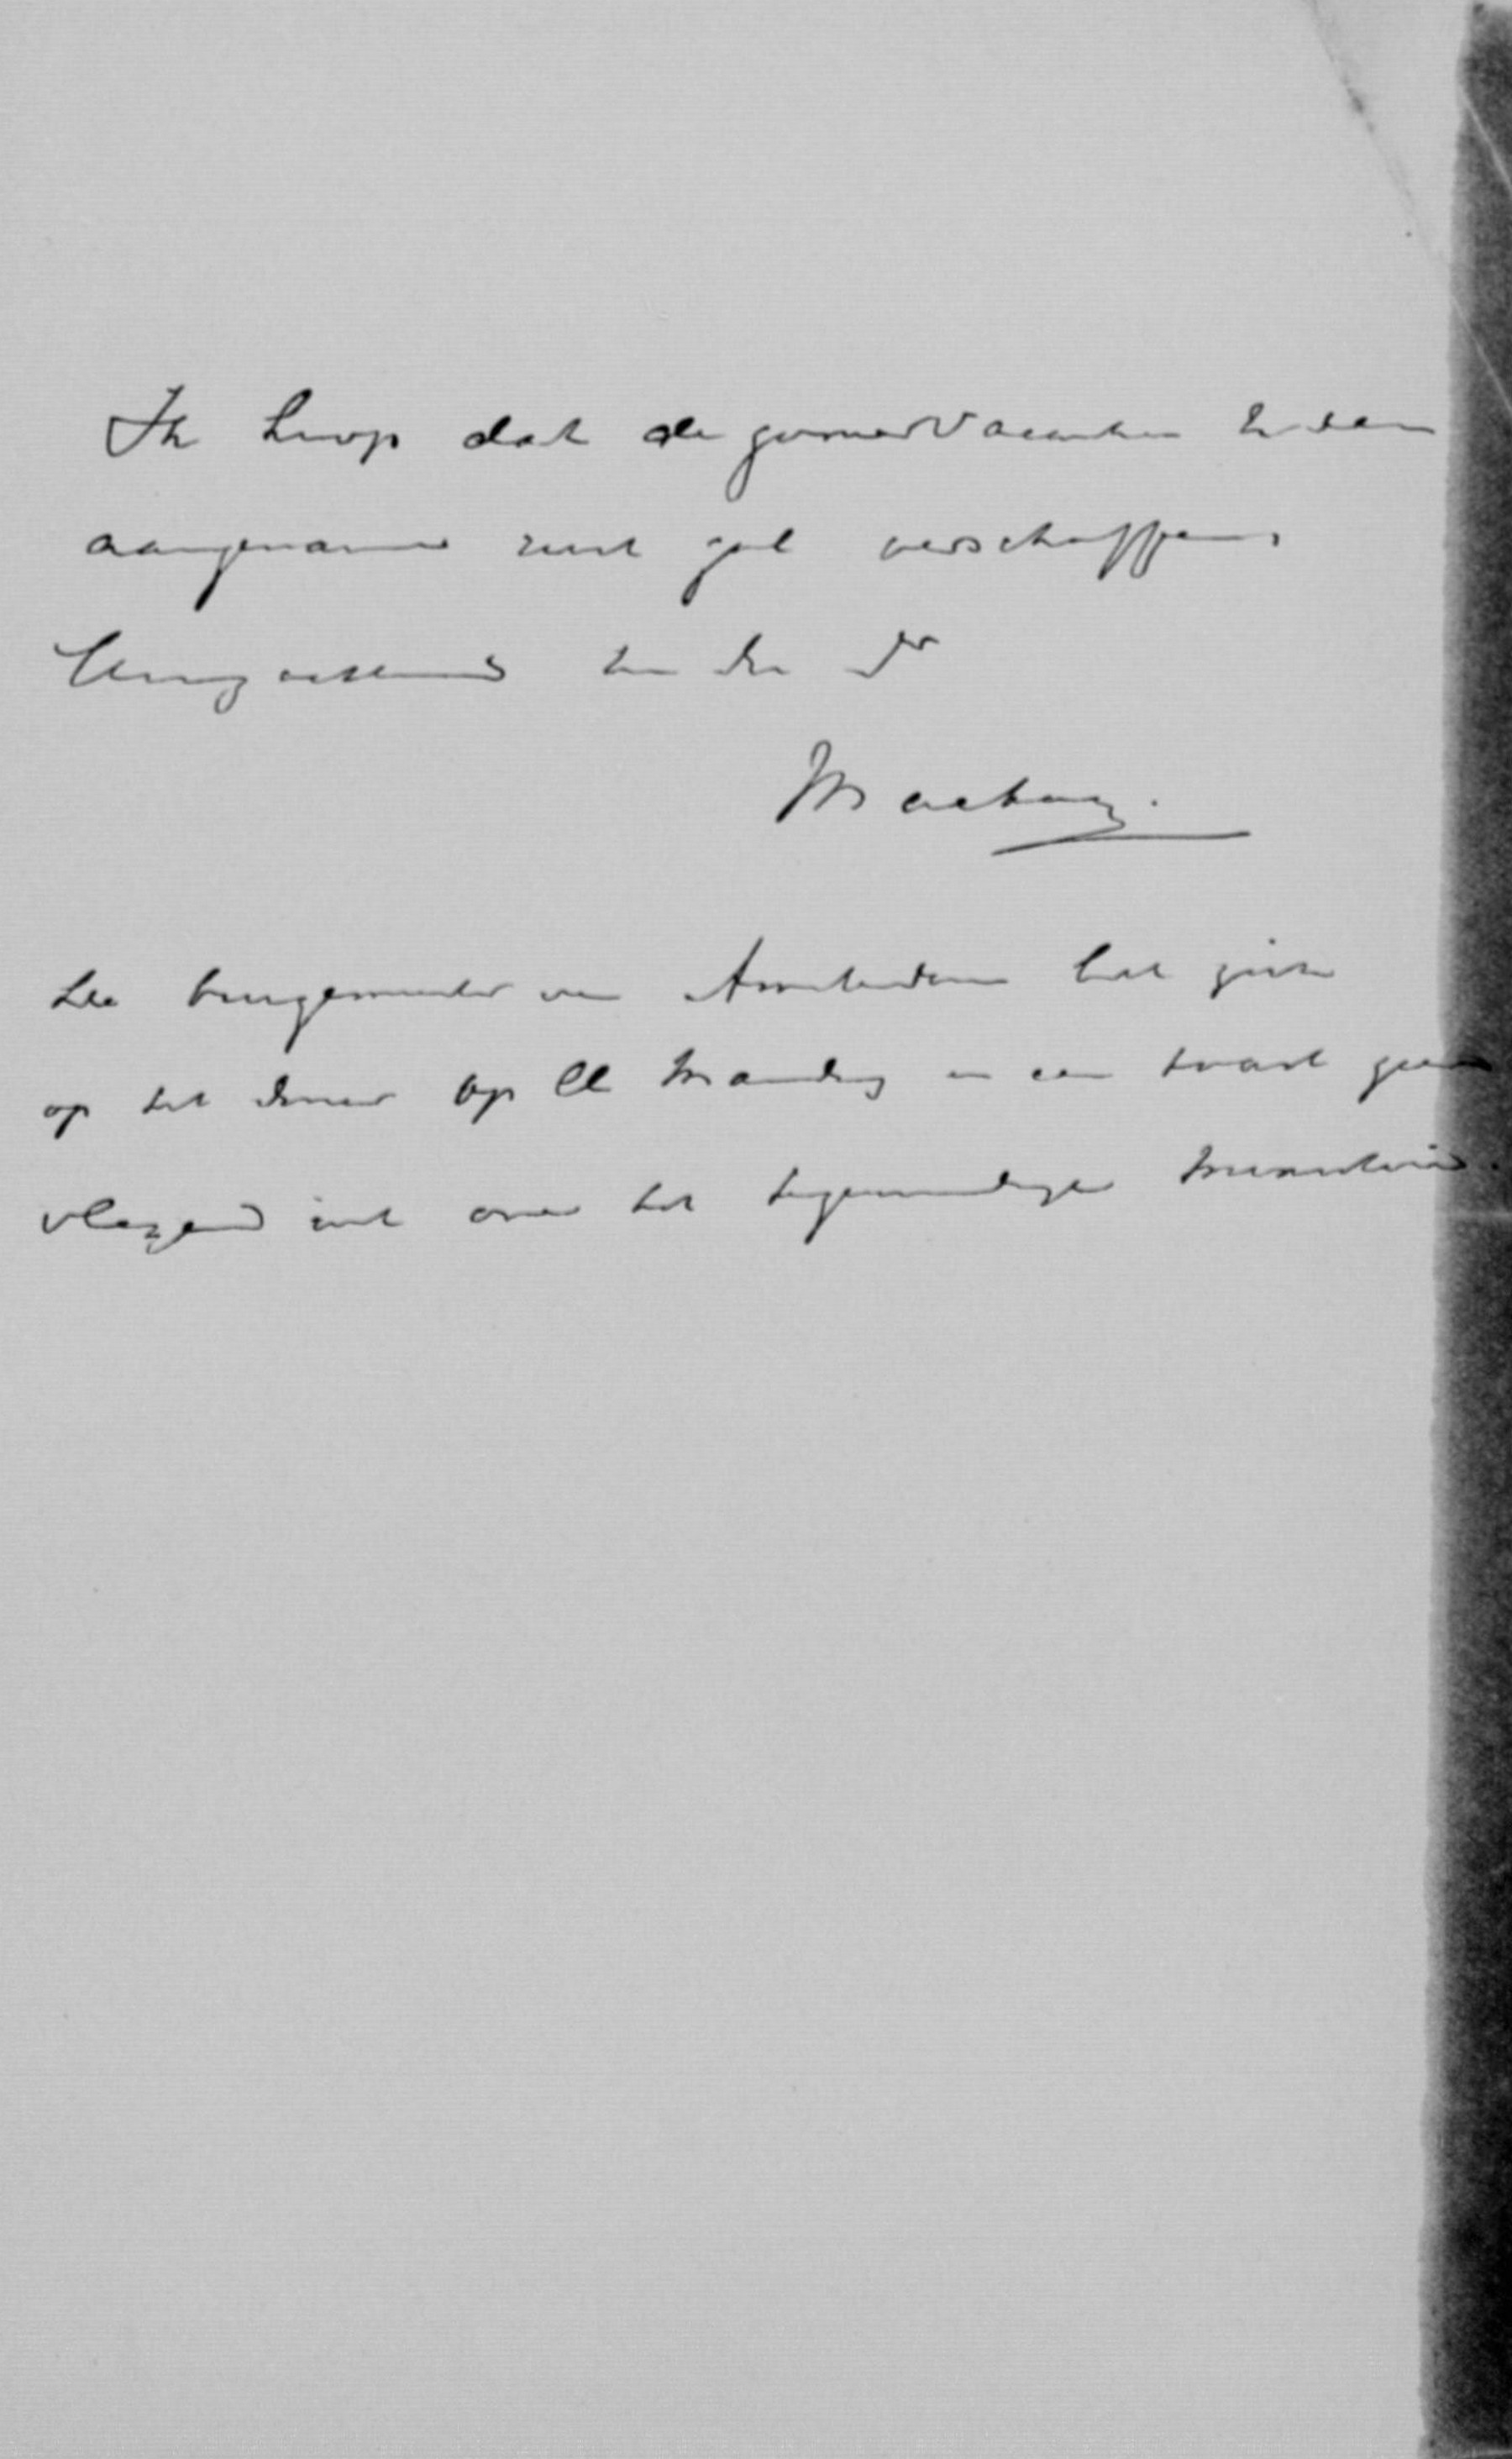 Ik hoop dat de zomervacantie U een
aangename rust zal verschaffen,
Hoogachtend
Mackay.
De burgemeester van Amsterdam liet zich
op het diner op ll Maandag in een toast zeer
vleyend uit over het tegenwoordige Ministerie.